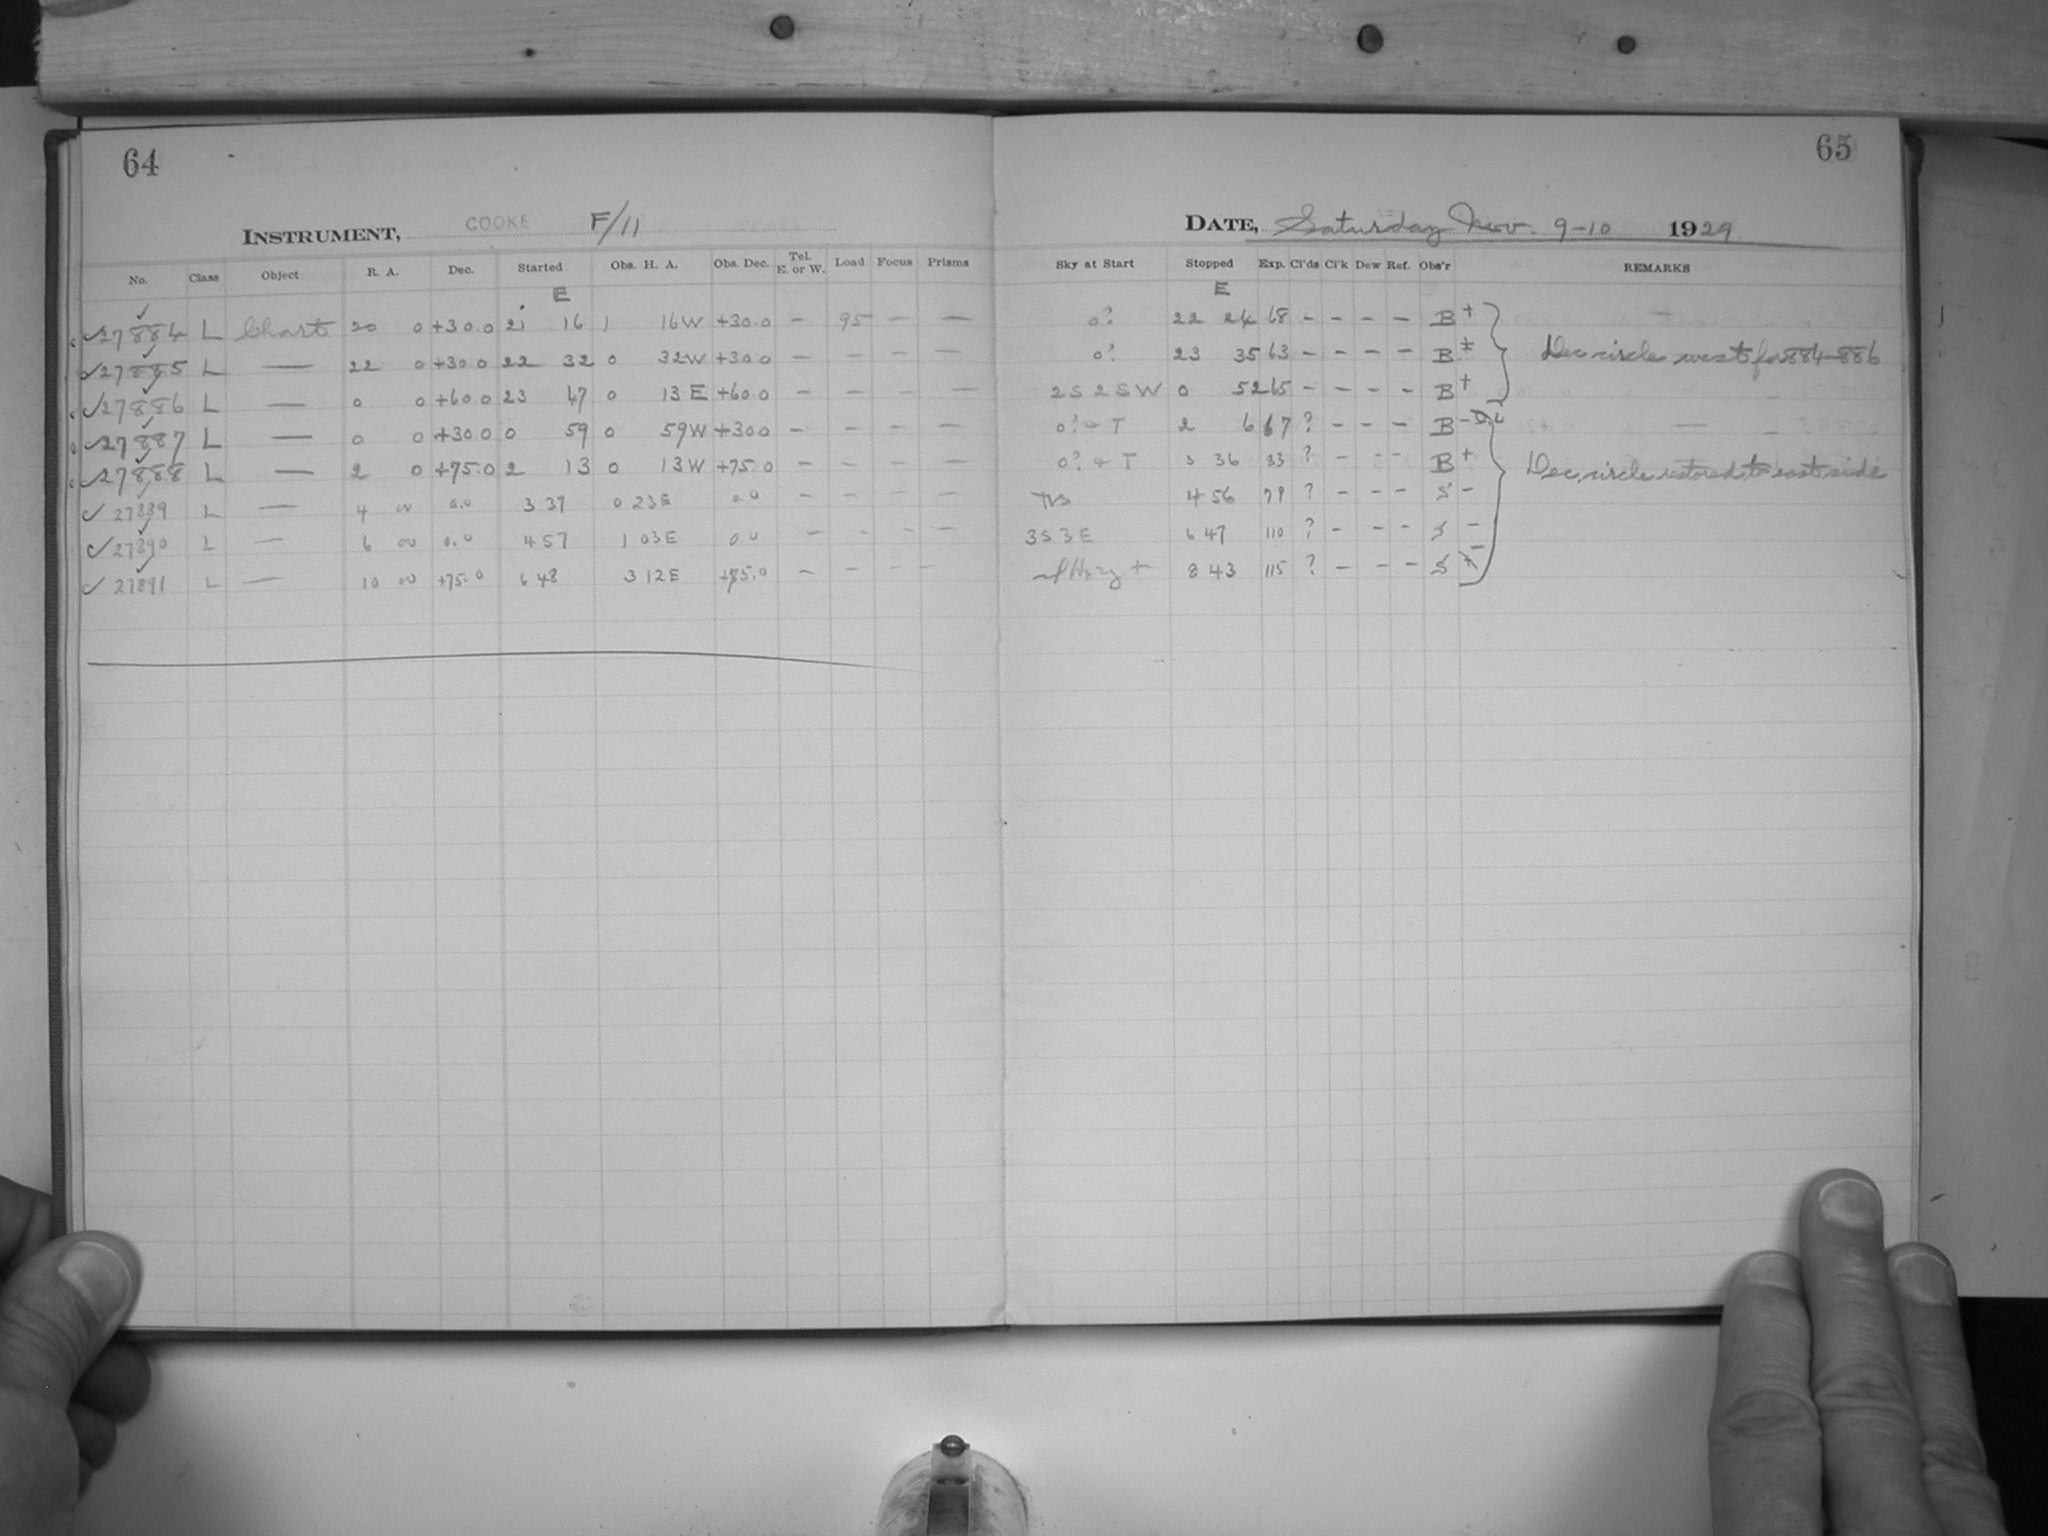 64
INSTRUMENT, COOKE F/11
No. Class Object R. A. Dec. Started Obs. H. A. Obs. Dec. Tel. E. or W. Load Focus Prisms
E
✓27884 L Chart 20 0 +30.0 21 16 1 16W +30.0 – 95 – –
✓27885 L — 22 0 +30.0 22 32 0 32W +30.0 – – – –
✓27886 L — 0 0 +60.0 23 47 0 13E +60.0 – – – –
✓27887 L — 0 0 +30.0 0 59 0 59W +30.0 – – – –
✓27888 L — 2 0 +75.0 2 13 0 13W +75.0 – – – –
✓27889 L — 4 00 0.0 3 37 0 23E 0.0 – – – –
✓27890 L — 6 00 0.0 4 57 1 03E 0.0 – – – –
✓27891 L — 10 00 +75.0 6 48 3 12E +75.0 – – – –
65
DATE, Saturday Nov. 9–10 1929
Sky at Start Stopped Exp. Cl'ds Cl'k Dew Ref. Obs'r REMARKS
E
0? 22 24 68 – – – – B +
0? 23 35 63 – – – – B ± Dec circle west for 884–886
2S 2SW 0 52 65 – – – – B +
0? + T 2 6 67 ? – – – B –
0? + T 3 36 83 ? – – – B + Dec, circle restored to east side
4 56 79 ? – – – S –
3S 3E 6 47 110 ? – – – S –
Hazy + 8 43 115 ? – – – S